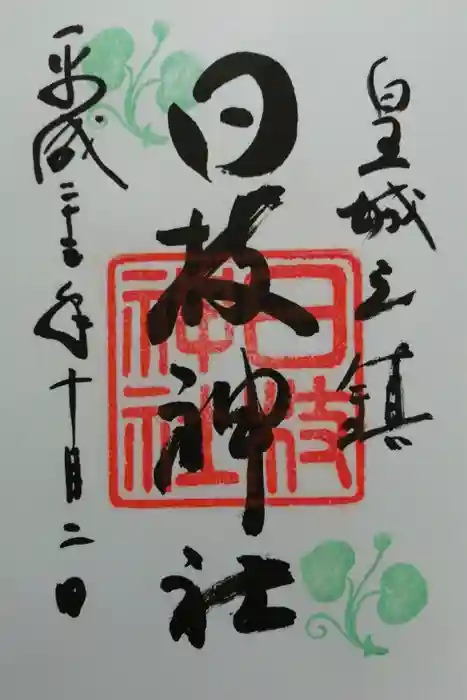 皇城之鎮
日枝神社
日枝神社
平成二十五年十月二日